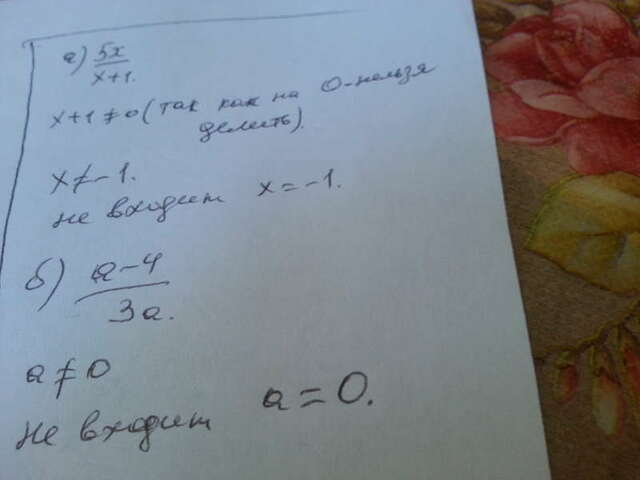 а) 5x
x+1.
x+1≠0 (так как на 0-нельзя
делить).
x≠-1.
не входит x=-1.
б) a-4
3a.
a≠0
не входит a=0.